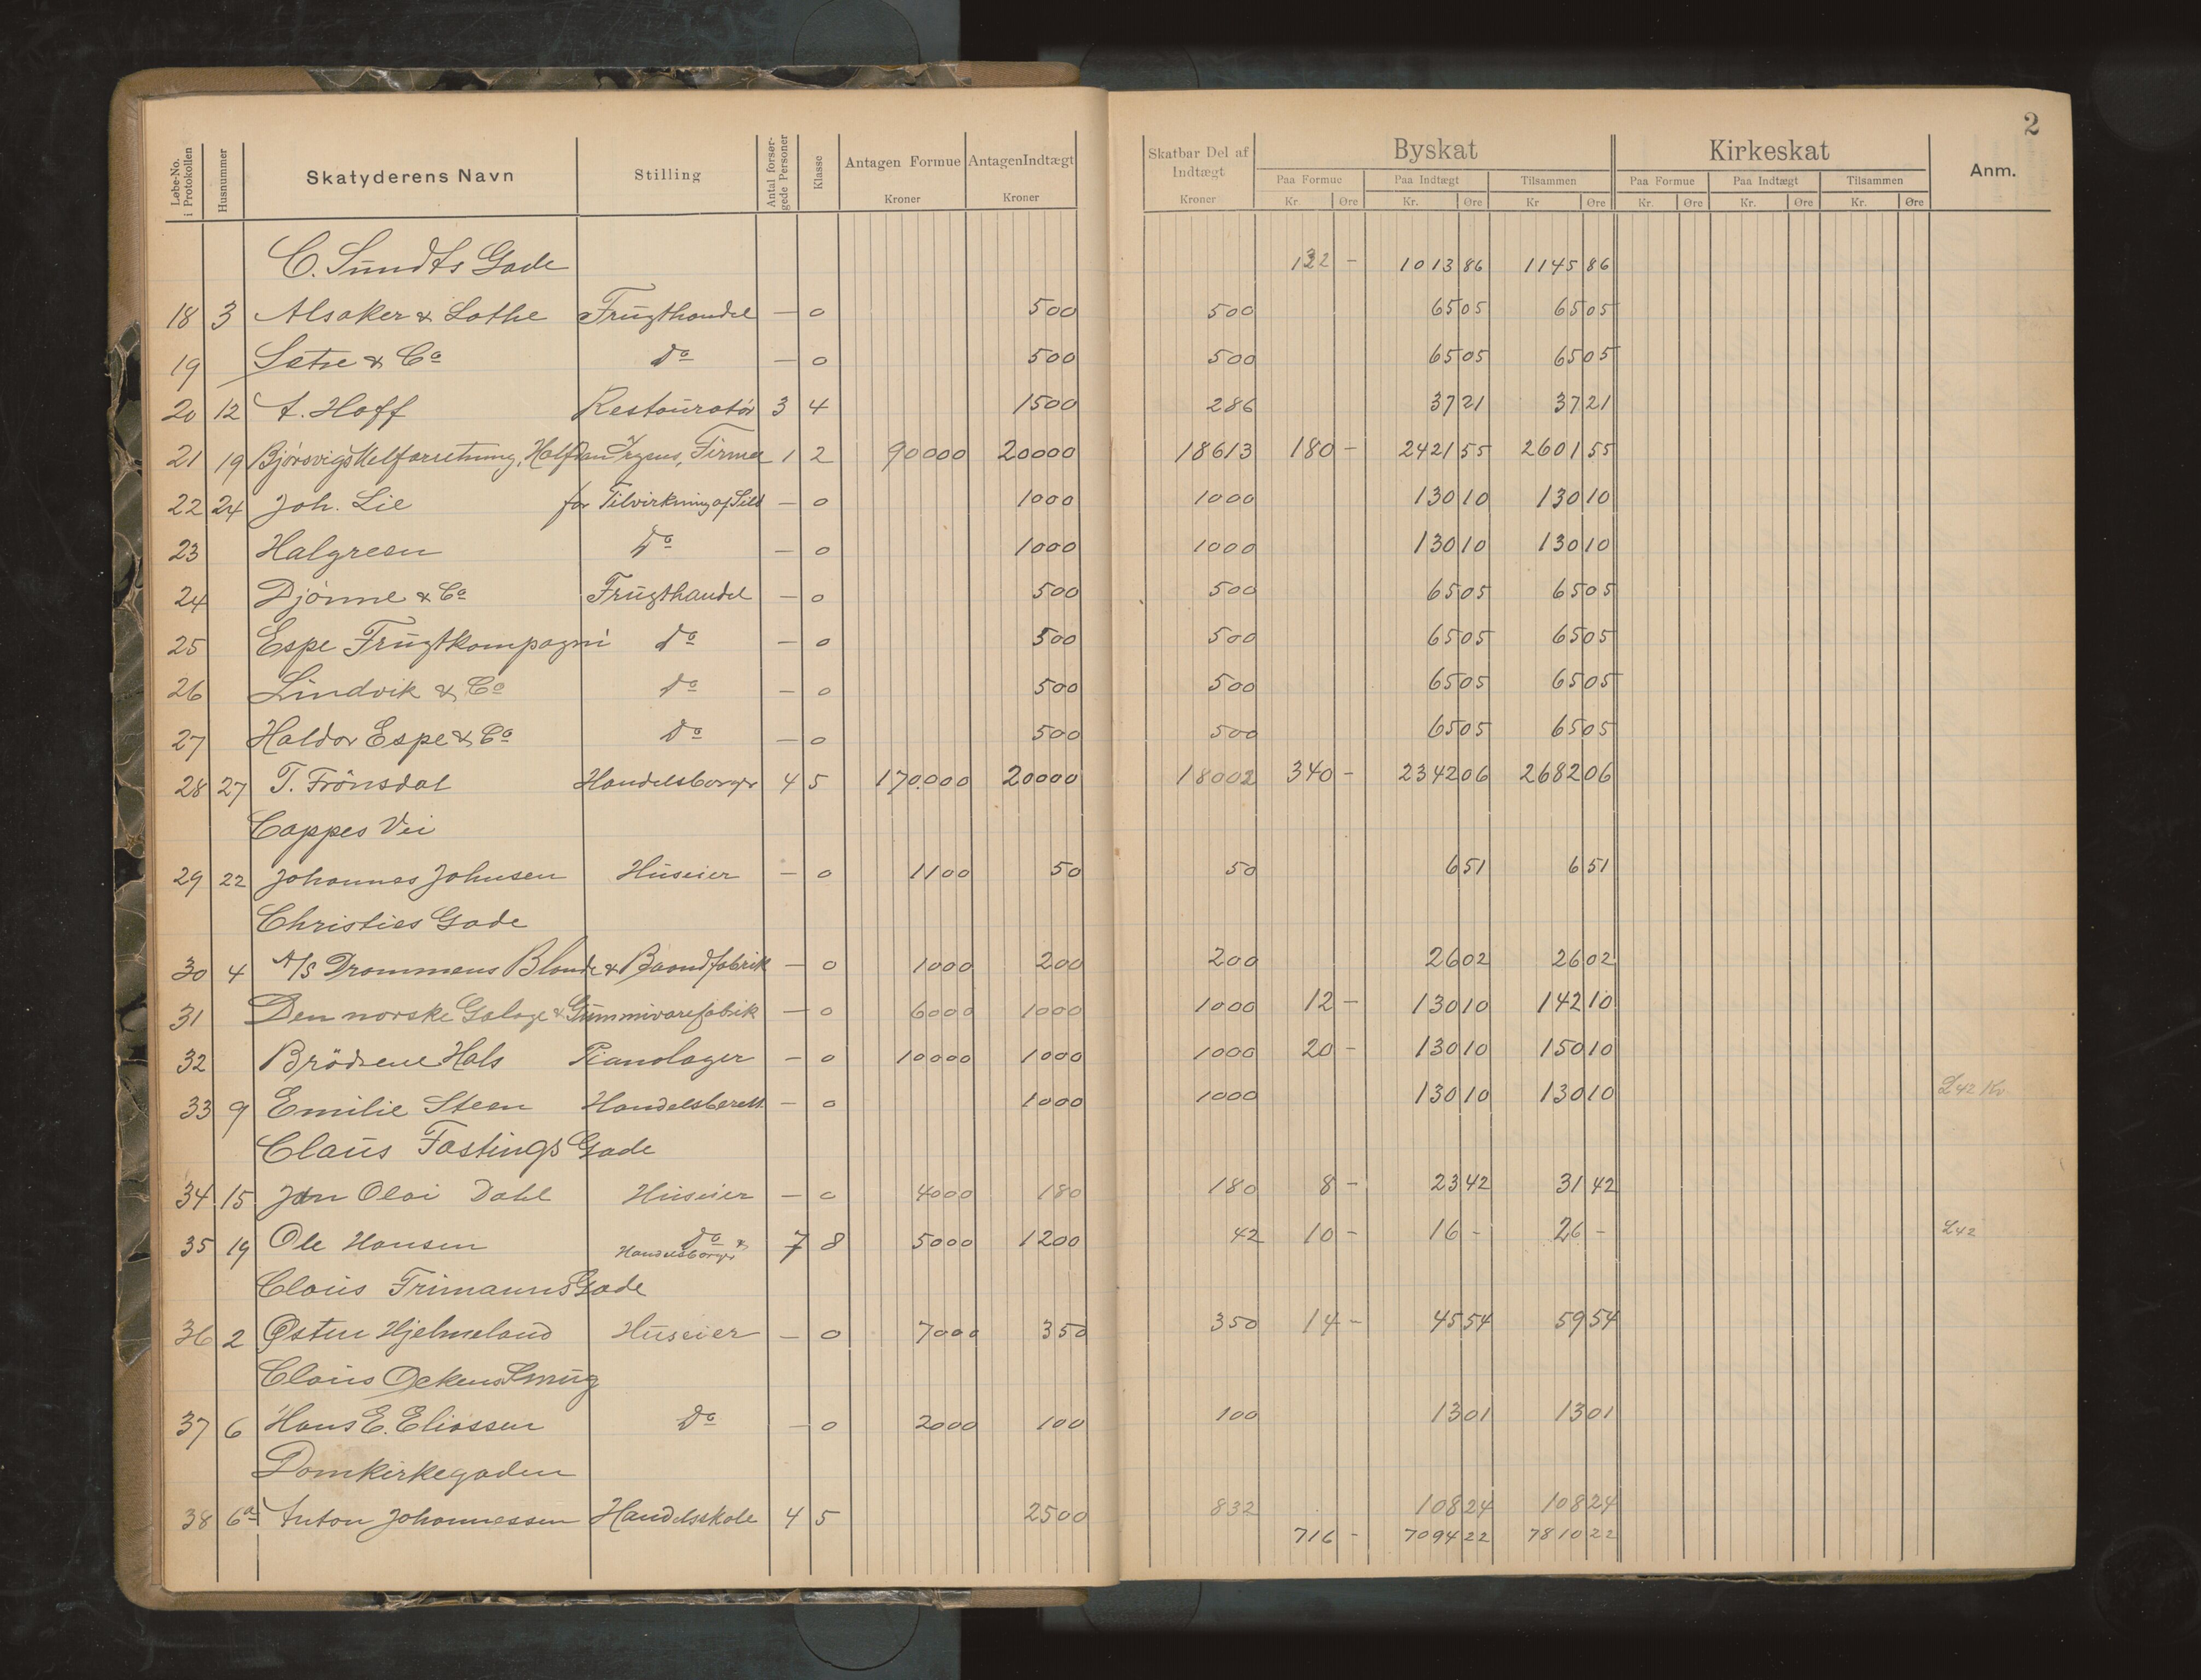 2
Løbe-No. i Protokollen Husnummer Skatyderens Navn Stilling Antal forsørgede Personer Klasse Antagen Formue Kroner Antagen Indtægt Kroner Skatbar Del af Indtægt Kroner Byskat Paa Formue Kr. Øre Paa Indtægt Kr. Øre Tilsammen Kr Øre Kirkeskat Paa Formue Kr. Øre Paa Indtægt Kr. Øre Tilsammen Kr. Øre Anm.
C. Sundts Gade 132 - 1013 86 1145 86
18 3 Alsaker & Lothe Frugthandel — 0 500 500 65 05 65 05
19 Sætre & Co do — 0 500 500 65 05 65 05
20 12 A. Hoff Restauratör 3 4 1500 286 37 21 37 21
21 19 Bjørsvigs Melforretning, Halfdan Irgens, Firma 1 2 90000 20000 18613 180 - 2421 55 2601 55
22 24 Joh. Lie for Tilvirkning af Sild — 0 1000 1000 130 10 130 10
23 Halgreen do — 0 1000 1000 130 10 130 10
24 Djönne & Co Frugthandel — 0 500 500 65 05 65 05
25 Espe Frugtkompagni do — 0 500 500 65 05 65 05
26 Lindvik & Co do — 0 500 500 65 05 65 05
27 Haldor Espe & Co do — 0 500 500 65 05 65 05
28 27 T. Frönsdal Handelsborger 4 5 170.000 20000 18002 340 - 2342 06 2682 06
Cappes Vei
29 22 Johannes Johnsen Huseier — 0 1100 50 50 6 51 6 51
Christies Gade
30 4 A/S Drammens Blonde & Baandfabrik — 0 1000 200 200 26 02 26 02
31 Den norske Galoge & Gummivarefabrik — 0 6000 1000 1000 12 - 130 10 142 10
32 Brödrene Hals Pianolager — 0 10000 1000 1000 20 - 130 10 150 10
33 9 Emilie Steen Handelsberett — 0 1000 1000 130 10 130 10 L42 Kr
Claus Fastings Gade
34 15 Jon Olai Dahl Huseier — 0 4000 180 180 8 - 23 42 31 42
35 19 Ole Hansen do & Handelsborger 7 8 5000 1200 42 10 - 16 - 26 - L42
Claus Frimanns Gade
36 2 Østen Hjelmeland Huseier — 0 7000 350 350 14 - 45 54 59 54
Claus Ockens Smug
37 6 Hans E. Eliassen Do — 0 2000 100 100 13 01 13 01
Domkirkegaden
38 6a Anton Johannessen Handelsskole 4 5 2500 832 108 24 108 24
716 - 7094 22 7810 22